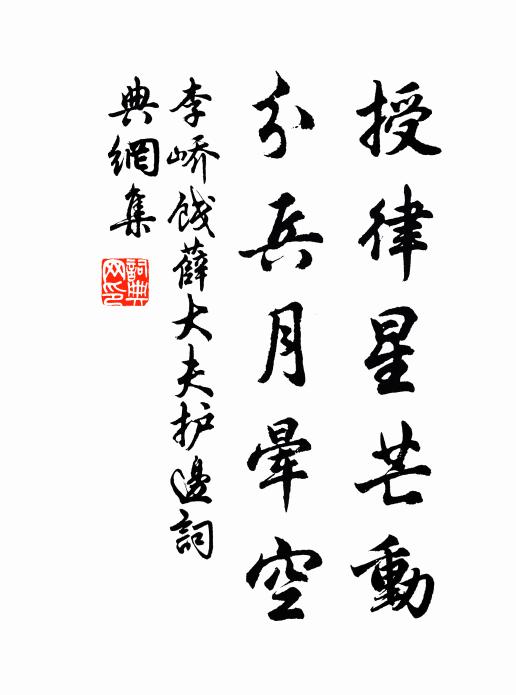 授律星芒動
分兵月暈空
李嶠餞薛大夫护邊詞
典網集
詞典网印